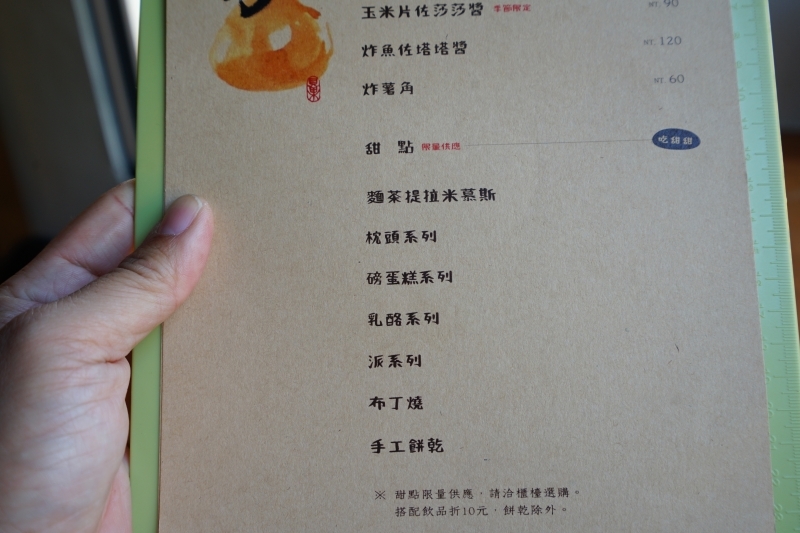 玉米片佐莎莎醬 季節限定 NT. 90
炸魚佐塔塔醬 NT. 120
炸薯角 NT. 60
甜 點 限量供應 吃甜甜
麵茶提拉米慕斯
枕頭系列
磅蛋糕系列
乳酪系列
派系列
布丁燒
手工餅乾
※ 甜點限量供應，請洽櫃檯選購。
搭配飲品折10元，餅乾除外。